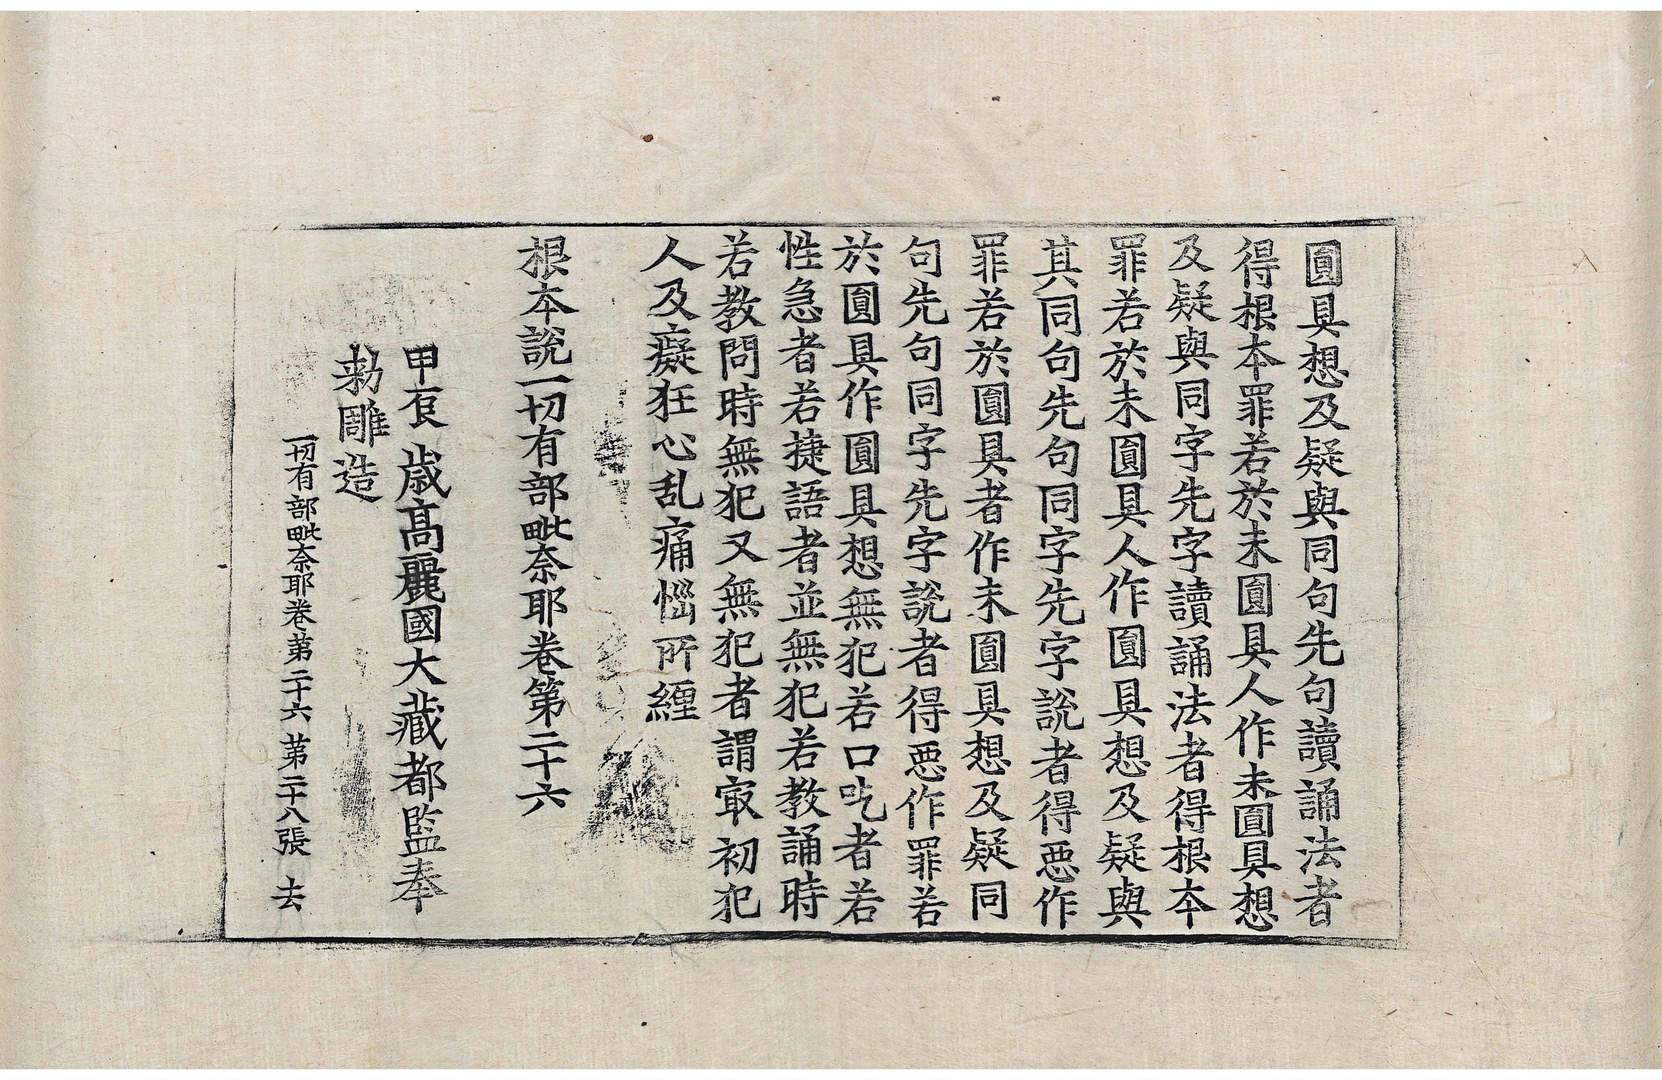 圓具想及疑與同句先句讀誦法者
得根本罪若於未圓具人作未圓具想
及疑與同字先字讀誦法者得根本
罪若於未圓具人作圓具想及疑與
其同句先句同字先字說者得惡作
罪若於圓具者作未圓具想及疑同
句先句同字先字說者得惡作罪若
於圓具作圓具想無犯若口吃者若
性急者若捷語者並無犯若教誦時
若教問時無犯又無犯者謂㝡初犯
人及癡狂心乱痛惱所纏
根本說一切有部毗奈耶卷第二十六
甲辰歲高麗國大藏都監奉
勑雕造
一切有部毗奈耶卷第二十六 第二十八張 去